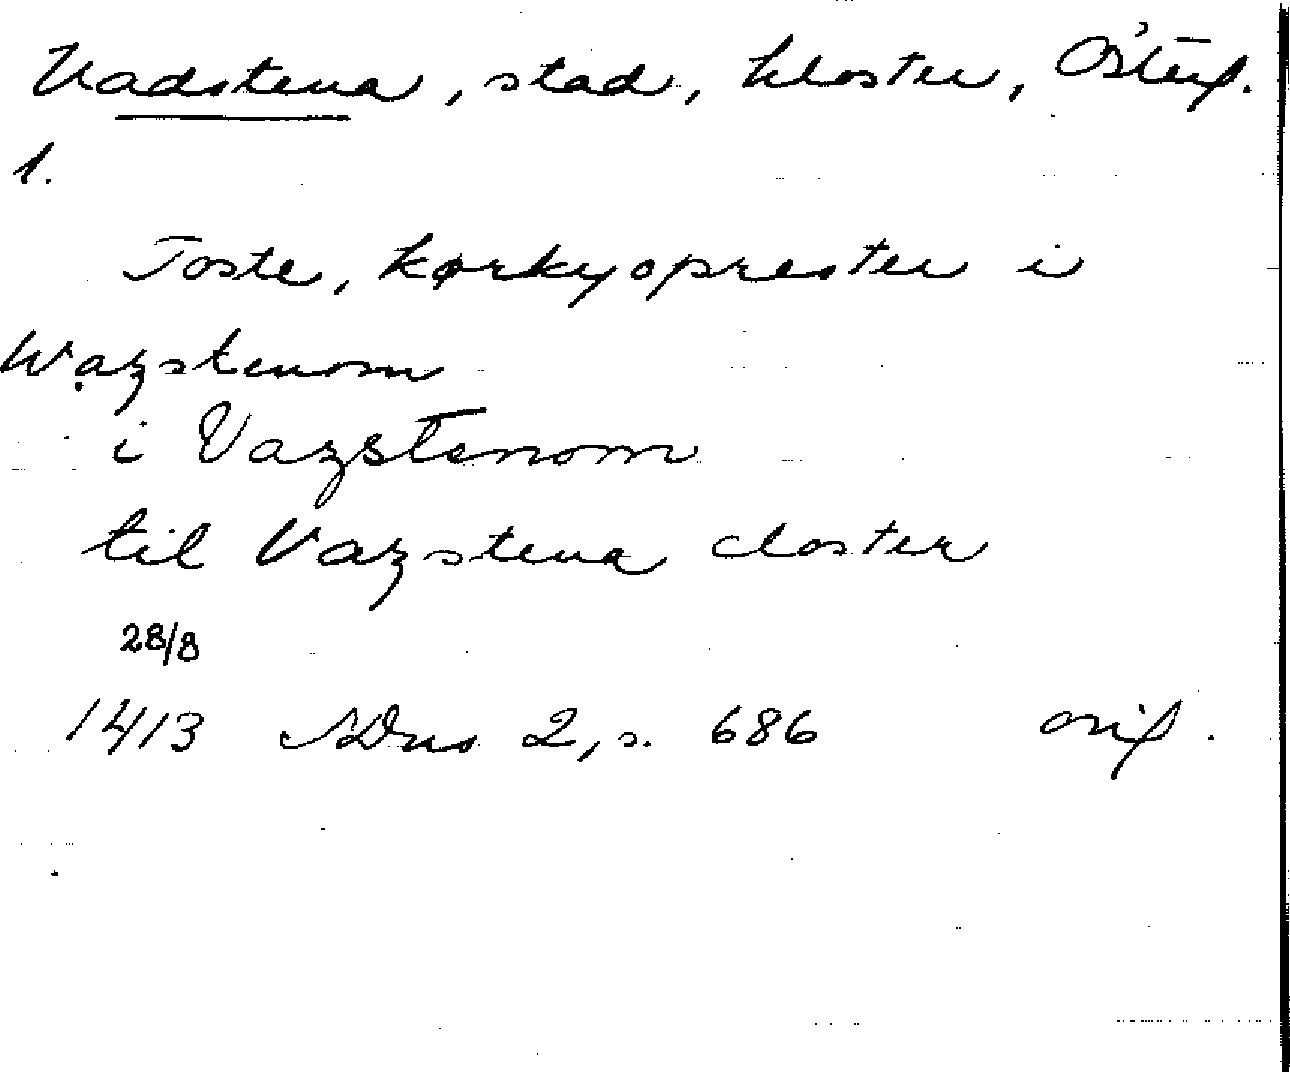 Vadstena, stad, kloster, Österg.
1.
Toste, kørkyoprester i
Wazstenom
i Vazstenom
til Vazstena closter
28/8
1413 SDns 2, s. 686 orig.